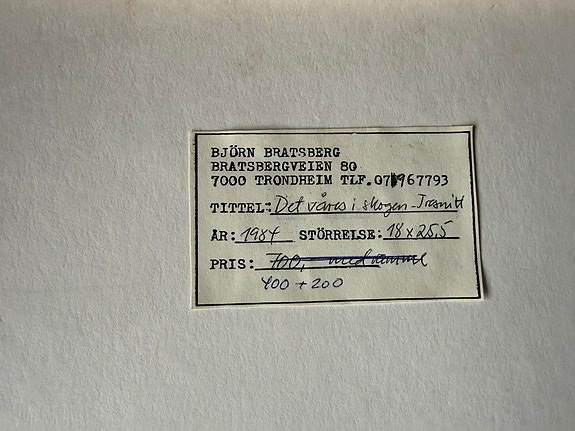 BJÖRN BRATSBERG
BRATSBERGVEIEN 80
7000 TRONDHEIM TLF.07967793
TITTEL: Det våres i skogen - Tresnitt
ÅR: 1984 STÖRRELSE: 18 x 25,5
PRIS: 700,- med ramme
400 + 200